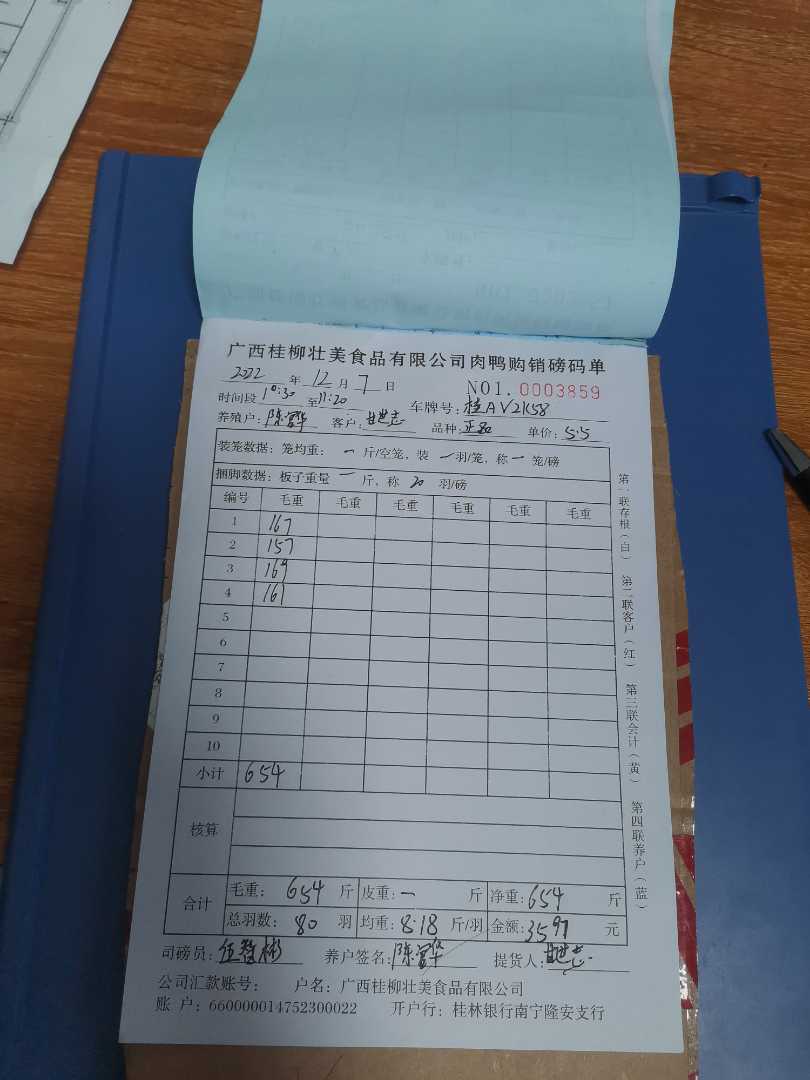 广西桂柳壮美食品有限公司肉鸭购销磅码单
2022 年 12 月 7 日 NO1. 0003859
时间段 10:30 至 11:20 车牌号: 桂AV2K58
养殖户: 陈富华 客户: 甘世志 品种: 单价: 5.5
装笼数据: 笼均重: — 斤/空笼, 装 — 羽/笼, 称 — 笼/磅
捆脚数据: 板子重量 — 斤, 称 20 羽/磅
编号 毛重 毛重 毛重 毛重 毛重 毛重
1 167
2 157
3 169
4 161
5
6
7
8
9
10
小计 654
核算
合计 毛重: 654 斤 皮重: — 斤 净重: 654 斤
总羽数: 80 羽 均重: 8.18 斤/羽 金额: 3597 元
司磅员: 伍智彬 养户签名: 陈富华 提货人: 甘世志
公司汇款账号: 户名: 广西桂柳壮美食品有限公司
账 户: 660000014752300022 开户行: 桂林银行南宁隆安支行
第一联存根(白) 第二联客户(红) 第三联会计(黄) 第四联养户(蓝)